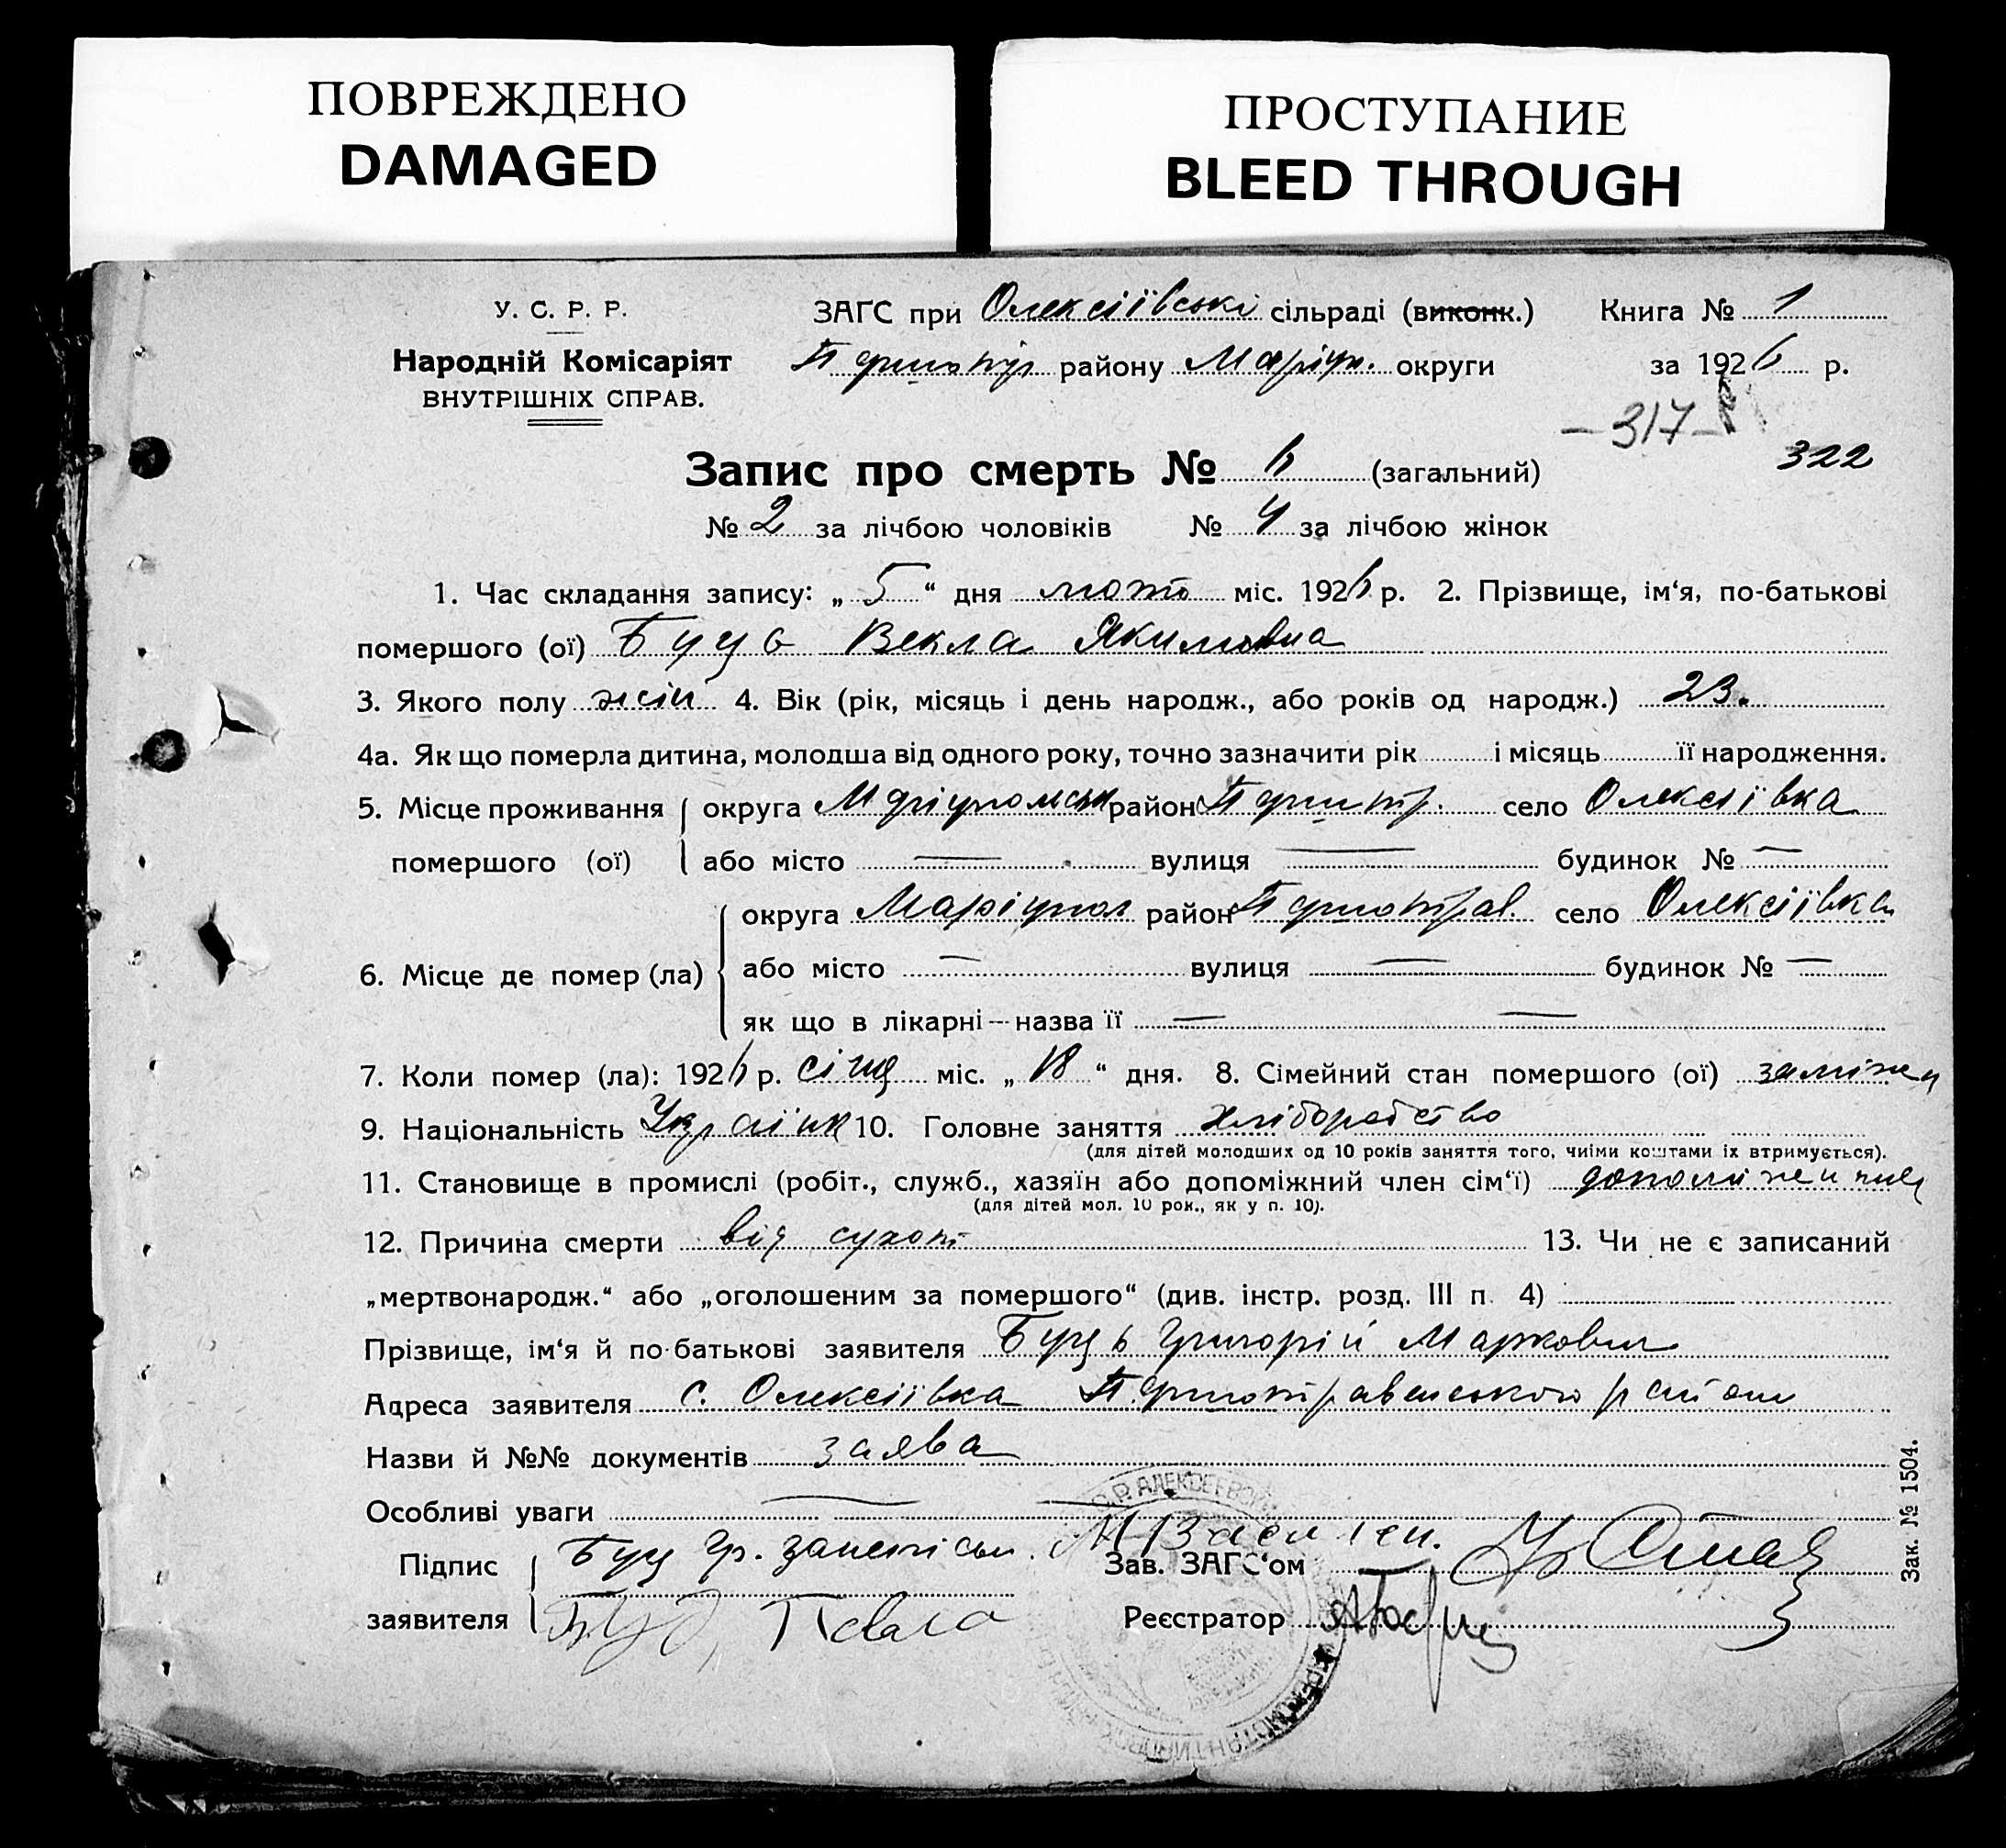 ПОВРЕЖДЕНО
DAMAGED
ПРОСТУПАНИЕ
BLEED THROUGH
У. С. Р. Р.
Народній Комісаріят
ВНУТРІШНІХ СПРАВ.
ЗАГС при Олексіївські сільраді (виконк.) Книга № 1
району Маріуп. округи за 1926 р.
-317-
322
Запис про смерть № 6 (загальний)
№ 2 за лічбою чоловіків № 4 за лічбою жінок
1. Час складання запису: „ 5 “ дня міс. 1926 р. 2. Прізвище, ім‘я, по-батькові
помершого (ої) Буць Векла Якимовна
3. Якого полу жін 4. Вік (рік, місяць і день народж., або років од народж.) 23.
4а. Як що померла дитина, молодша від одного року, точно зазначити рік і місяць її народження.
5. Місце проживання округа Маріупольськ район село Олексіївка
помершого (ої) або місто — вулиця — будинок № —
округа Маріупол район Першотрав. село Олексіївка
6. Місце де помер (ла) або місто — вулиця — будинок № —
як що в лікарні — назва її — —
7. Коли помер (ла): 1926 р. січня міс. „ 18 “ дня. 8. Сімейний стан помершого (ої) заміжня
9. Національність Українк 10. Головне заняття хліборобство
(для дітей молодших од 10 років заняття того, чиїми коштами їх втримується).
11. Становище в промислі (робіт., служб., хазяїн або допоміжний член сім‘ї)
(для дітей мол. 10 рок., як у п. 10).
12. Причина смерти від сухот 13. Чи не є записаний
„мертвонародж.“ або „оголошеним за помершого“ (див. інстр. розд. III п. 4)
Прізвище, ім‘я й по-батькові заявителя Буць Григорій Маркович
Адреса заявителя с. Олексіївка Першотравенського району
Назви й №№ документів заява
Особливі уваги — —
Підпис Буц Гр. Зав. ЗАГС‘ом
заявителя Буц Павло Реєстратор
Зак. № 1504.